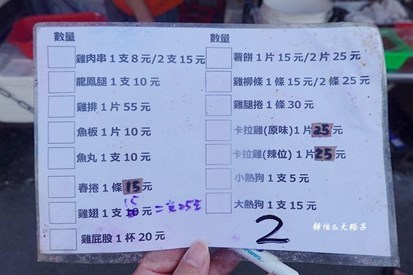 數量
雞肉串 1 支 8 元/2 支 15 元
龍鳳腿 1 支 10 元
雞排 1 片 55 元
魚板 1 片 10 元
魚丸 1 支 10 元
春捲 1 條 15 元
雞翅 1 支 15 元 二支25元
雞屁股 1 杯 20 元
數量
薯餅 1 片 15 元/2 片 25 元
雞柳條 1 條 15 元/2 條 25 元
雞腿捲 1 條 30 元
卡拉雞(原味) 1 片 25 元
卡拉雞(辣位) 1 片 25 元
小熱狗 1 支 5 元
大熱狗 1 支 15 元
2